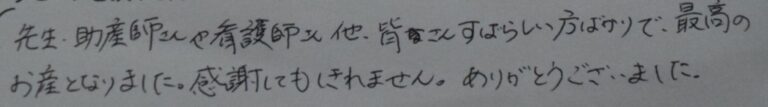 先生・助産師さんや看護師さん他、皆さんすばらしい方ばかりで、最高の
お産となりました。感謝してもしきれません。ありがとうございました。